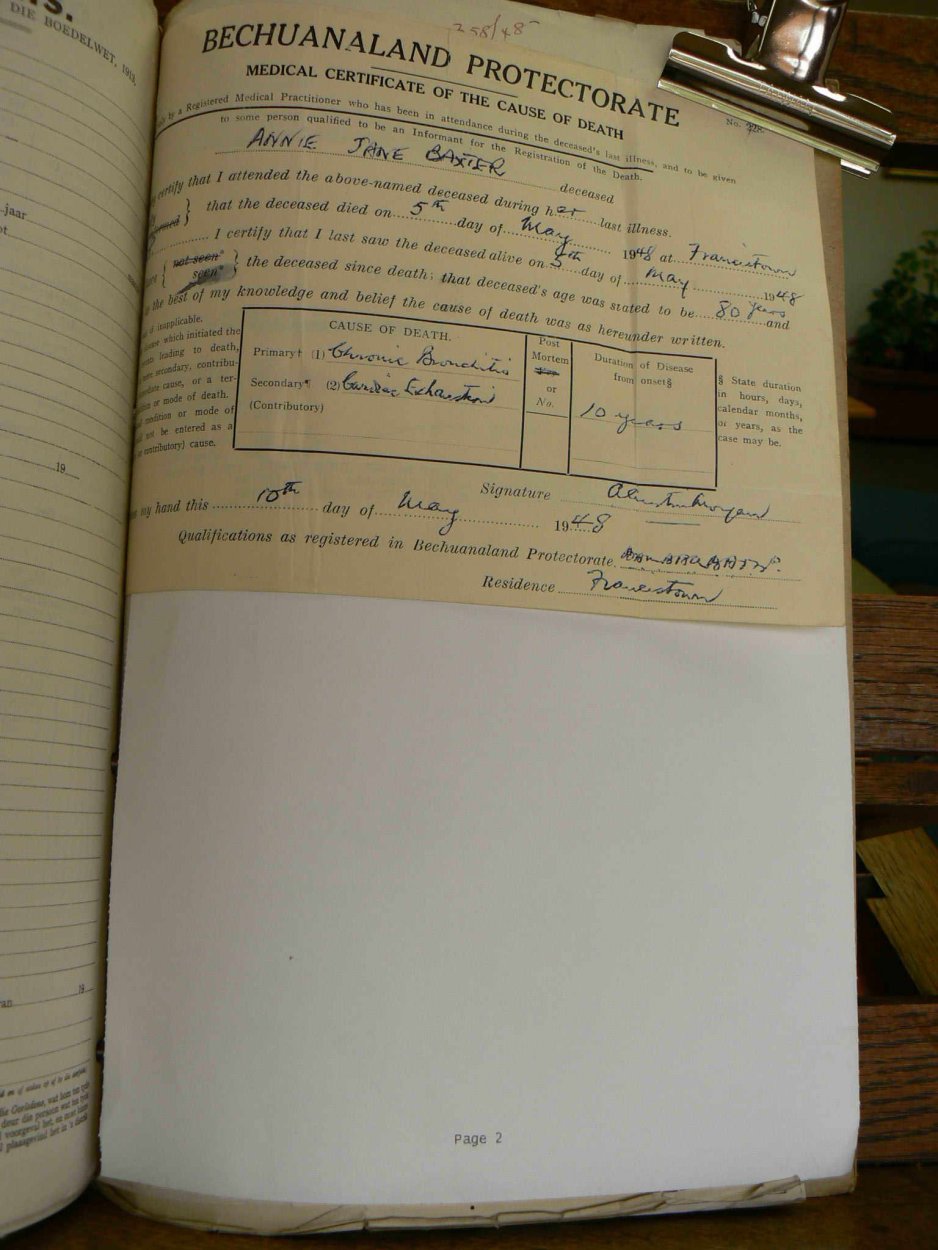 DIE BOEDELWET, 1913.
-jaar
19
19
258/48
BECHUANALAND PROTECTORATE
MEDICAL CERTIFICATE OF THE CAUSE OF DEATH
No.
by a Registered Medical Practitioner who has been in attendance during the deceased's last illness, and to be given
to some person qualified to be an Informant for the Registration of the Death.
ANNIE JANE BAXTER deceased
certify that I attended the above-named deceased during her last illness.
that the deceased died on 5th day of May 1948 at Francistown
I certify that I last saw the deceased alive on 5th day of May 1948
{ not seen* seen* } the deceased since death; that deceased's age was stated to be 80 years and
the best of my knowledge and belief the cause of death was as hereunder written.
if inapplicable.
disease which initiated the
leading to death,
secondary, contribu-
cause, or a ter-
or mode of death.
condition or mode of
not be entered as a
contributory) cause.
CAUSE OF DEATH.
Primary† (1) Chronic Bronchitis
Secondary¶ (2) Cardiac Exhaustion
(Contributory)
Post
Mortem
or
No.
Duration of Disease
from onset§
10 years
§ State duration
in hours, days,
calendar months,
or years, as the
case may be.
Signature
my hand this 10th day of May 1948
Qualifications as registered in Bechuanaland Protectorate.
Residence Francistown
Page 2